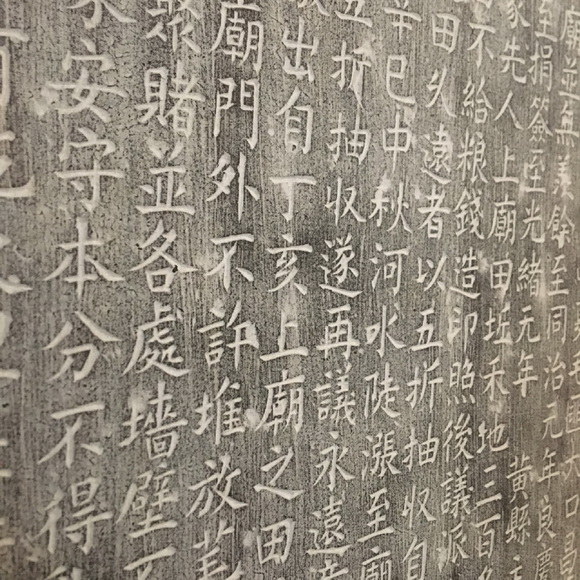 廟並無羨餘至同治元年良
至捐簽至光緒元年黃縣
家先人上廟田坵禾地三百
不給粮錢造印照後議派
田久遠者以五折抽收自
辛巳中秋河水陡漲至廟
五折抽收遂再議永遠
出自丁亥上廟之田
廟門外不許堆放
聚賭並各處墻壁不
安守本分不得